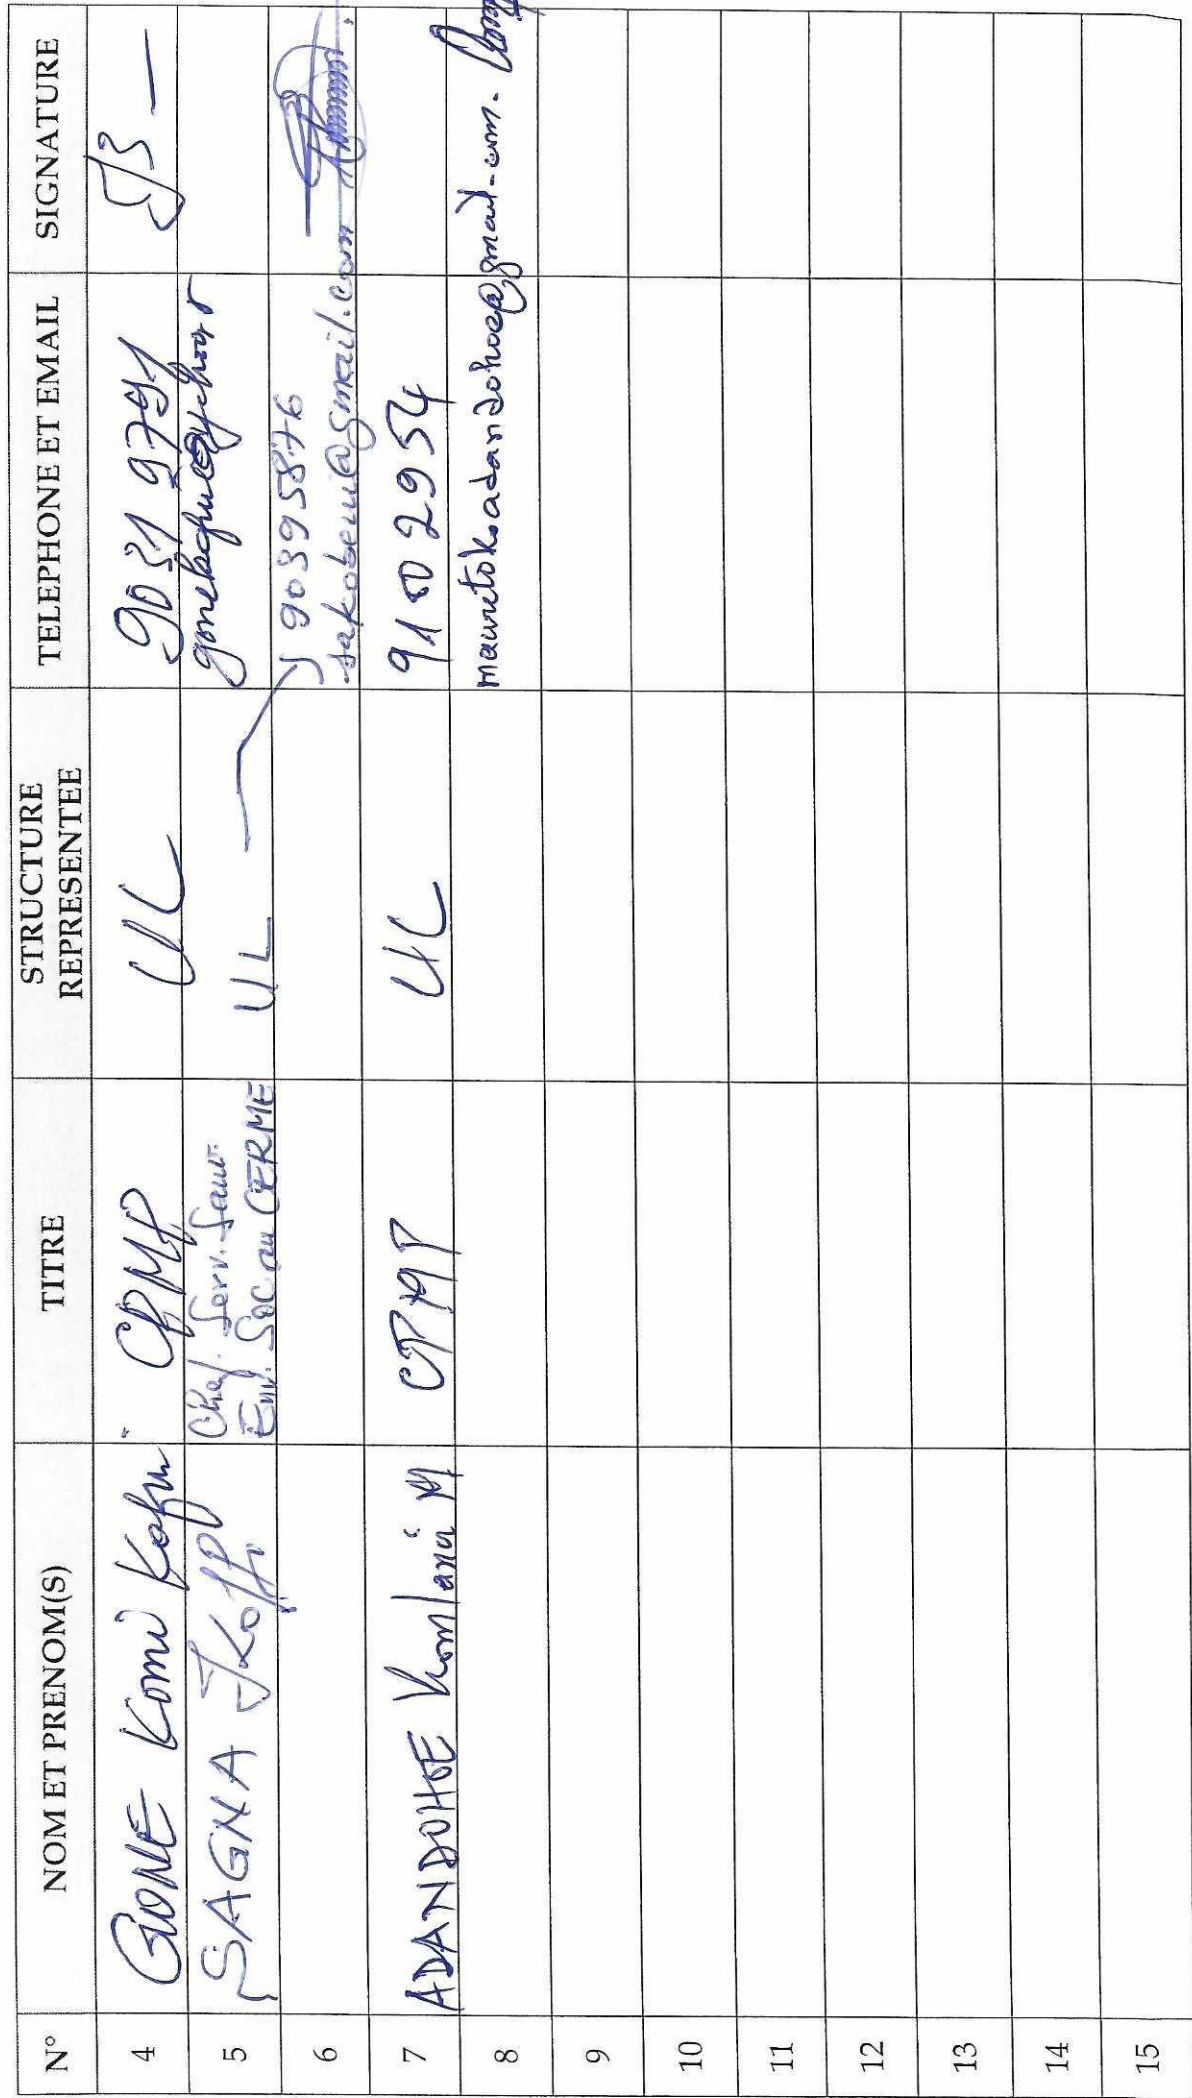 N° NOM ET PRENOM(S) TITRE STRUCTURE REPRESENTEE TELEPHONE ET EMAIL SIGNATURE
4 GONE Komi CPMP UL 9031 9791
5 SAGNA Koffi Chef. Serv. Sauv. UL
Env. Soc au CERME
6 90395876
sakobeni@gmail.com
7 ADANDOHOE Komlanvi M CPMP UL 91002954
8 mauritokoadandohoe@gmail.com
9
10
11
12
13
14
15